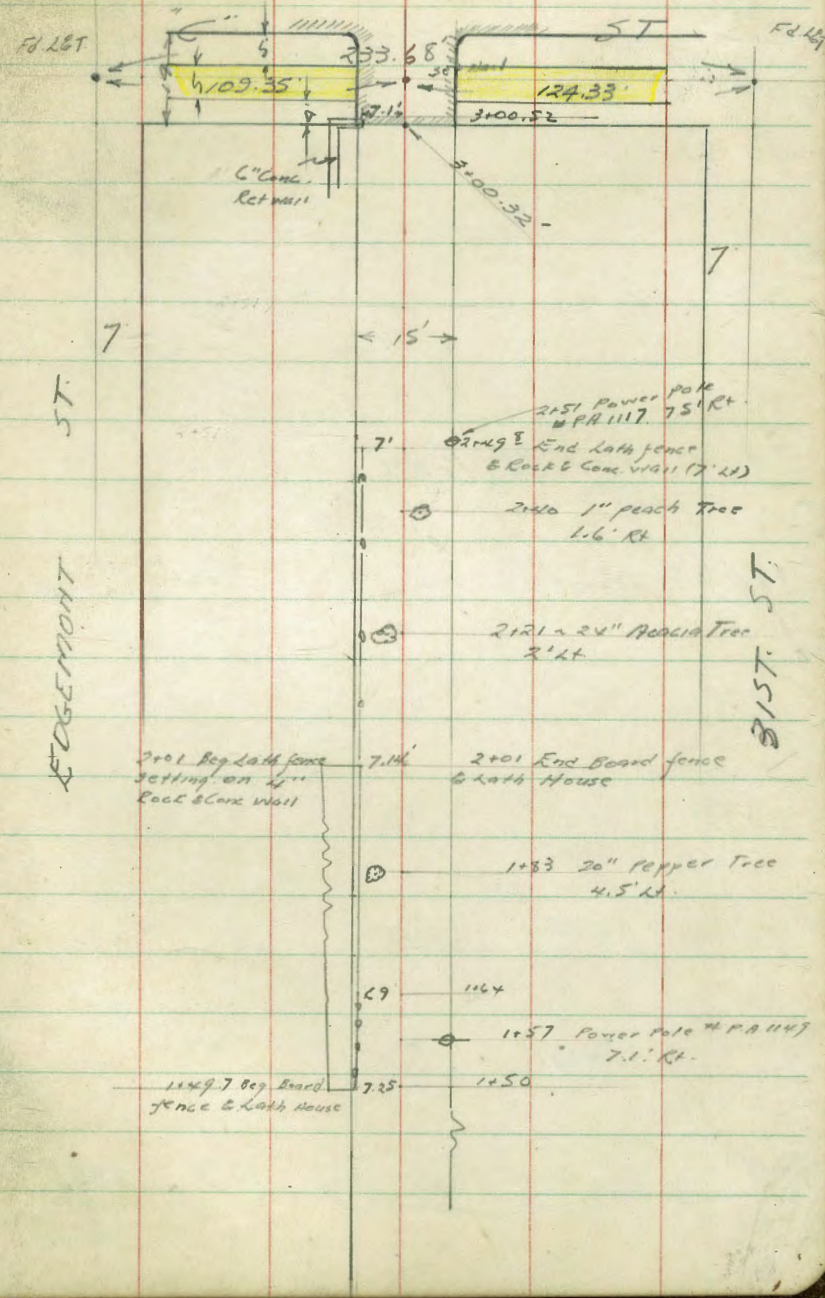 "C" ST
Fd. L&T
Fd L&T
233.68
14'
5
5
109.35'
124.33'
4'
7.1'
3+00.52
3+00.32
6" Conc.
Ret wall
7
7
15'
EDGEMONT ST.
31ST. ST.
2+51 Power pole
# PA 1117 7.5' Rt.
7'
2+49 End Lath fence
& Rock & Conc. wall (7' Lt)
2+40 1" peach Tree
1.6' Rt
2+21 ~ 24" Acacia Tree
2' Lt
2+01 Beg Lath fence
setting on 4"
Rock & Conc wall
7.14'
2+01 End Board fence
& Lath House
1+83 20" Pepper Tree
4.5' Lt.
6.9
1+64
1+57 Power Pole # PA 1149
7.1' Rt.
1+49.7 Beg Board
fence & Lath House
7.25
1+50